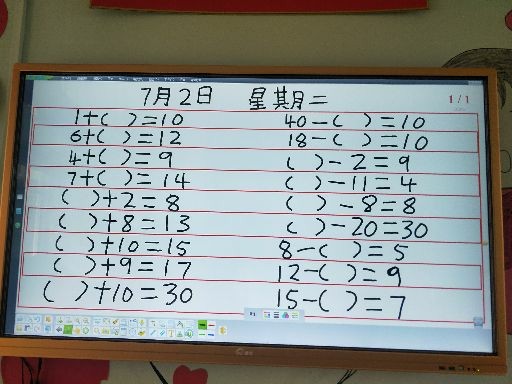 7月2日 星期二
1/1
1+( )=10 40-( )=10
6+( )=12 18-( )=10
4+( )=9 ( )-2=9
7+( )=14 ( )-11=4
( )+2=8 ( )-8=8
( )+8=13 ( )-20=30
( )+10=15 8-( )=5
( )+9=17 12-( )=9
( )+10=30 15-( )=7